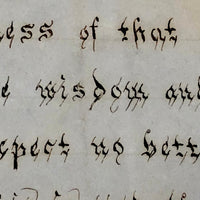 ness of that
e wisdom and
epect no bett